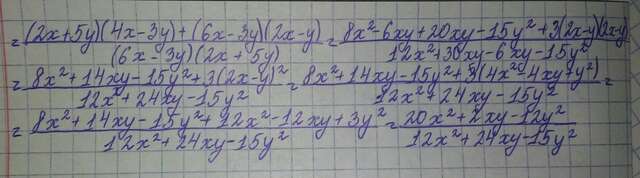 = (2x+5y)(4x-3y)+(6x-3y)(2x-y) / (6x-3y)(2x+5y) = 8x²-6xy+20xy-15y²+3(2x-y)(2x-y) / 12x²+30xy-6xy-15y² =
= 8x²+14xy-15y²+3(2x-y)² / 12x²+24xy-15y² = 8x²+14xy-15y²+3(4x²-4xy+y²) / 12x²+24xy-15y² =
= 8x²+14xy-15y²+12x²-12xy+3y² / 12x²+24xy-15y² = 20x²+2xy-12y² / 12x²+24xy-15y²